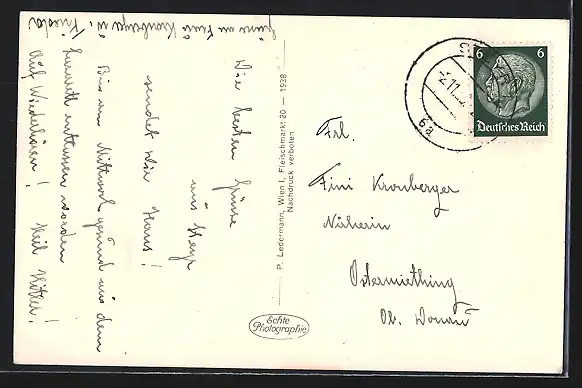 Die besten Grüsse
aus Steyr
sendet dir Hans!
Bin am Mittwoch gesund aus dem
Lazarett entlassen worden
Auf Wiedersehen! Heil Hitler!
Grüsse an Fini Kronberger u. Friedl
P. Ledermann, Wien I, Fleischmarkt 20 — 1938
Nachdruck verboten
Echte
Photographie
6 6
Deutsches Reich
2.11.
6a
Frl.
Fini Kronberger
Näherin
Ostermiething
Ob. Donau